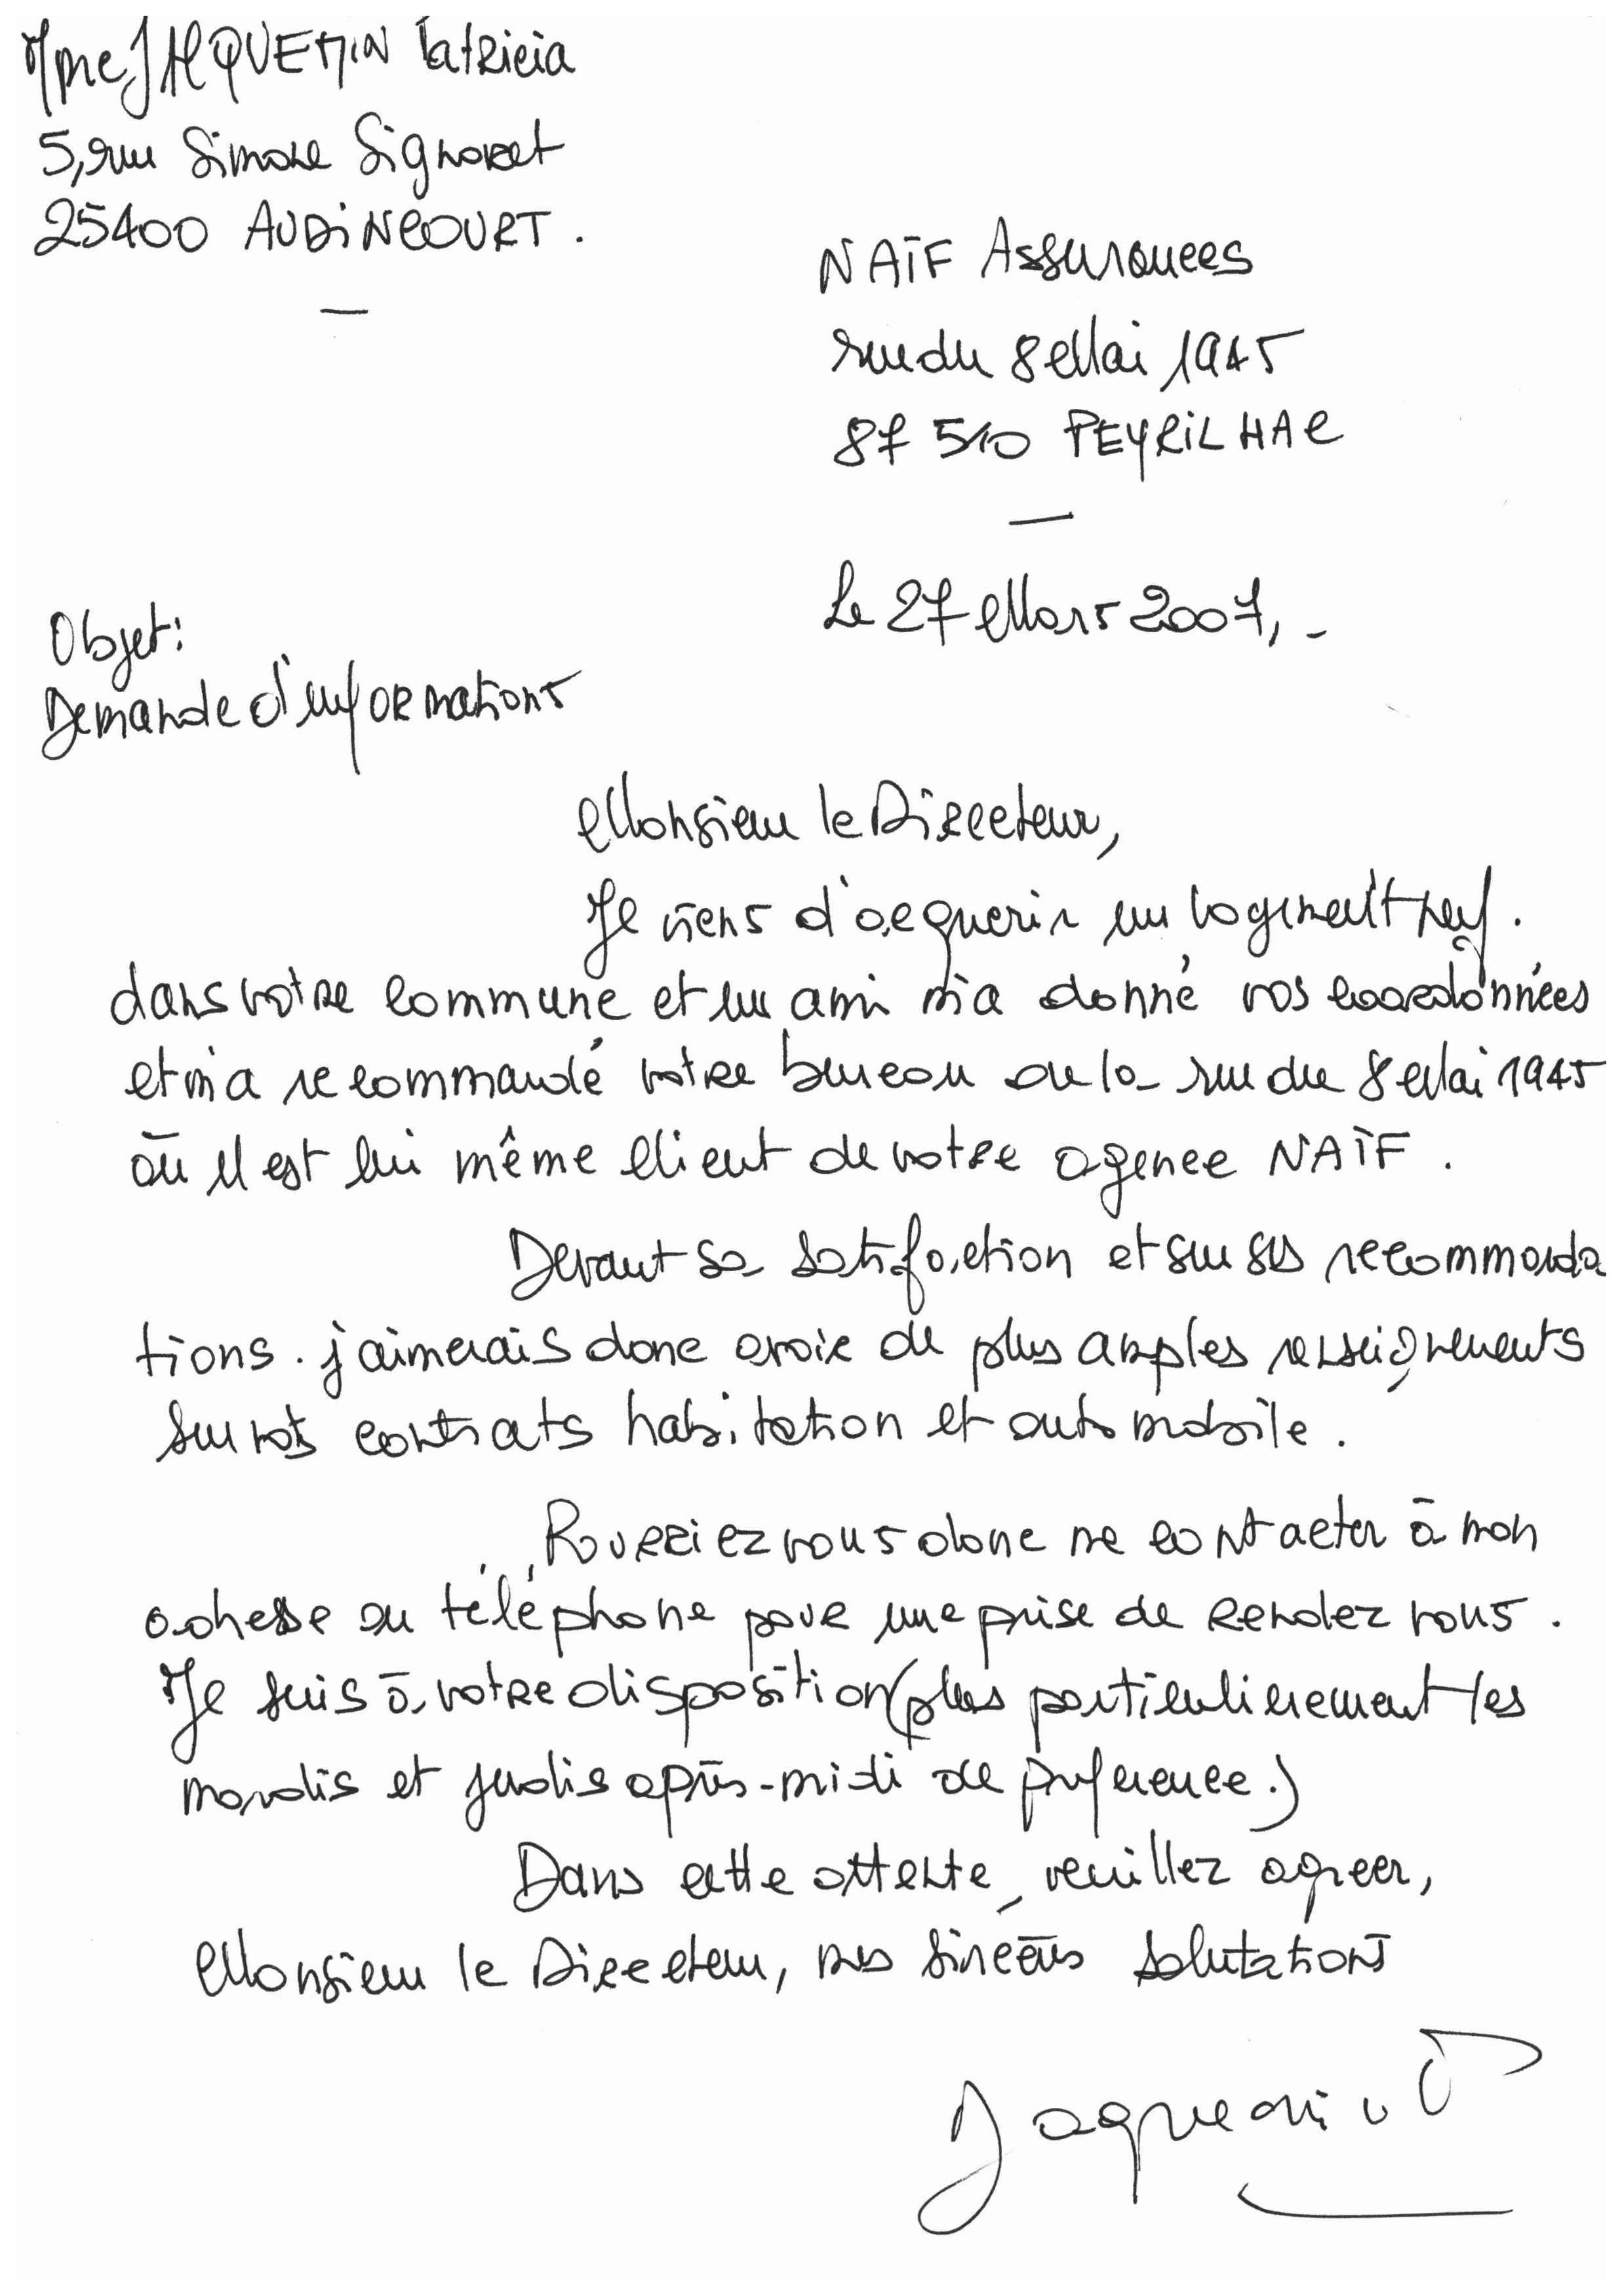 Mme JACQUEMIN Patricia
5, rue Simone Signoret
25400 AUDINCOURT.
NAÏF Assurances
rue du 8 Mai 1945
87 510 PEYRILHAC
Le 27 Mars 2007,-
Objet:
Demande d'informations
Monsieur le Directeur,
Je viens d'acquerir un logement neuf.
dans votre commune et un ami m'a donné vos coordonnées
et m'a recommandé votre bureau de la rue du 8 Mai 1945
où il est lui même client de votre agence NAÏF.
Devant sa satisfaction et sur ses recommanda
tions. j'aimerais donc avoir de plus amples renseignements
sur vos contrats habitation et automobile.
Pourriez vous donc me contacter à mon
adresse ou téléphone pour une prise de rendez vous.
Je suis à votre disposition (plus particulièrement les
mardis et jeudis après-midi de préférence.)
Dans cette attente, veuillez agréer,
Monsieur le Directeur, mes sincères salutations
Jaquemin P